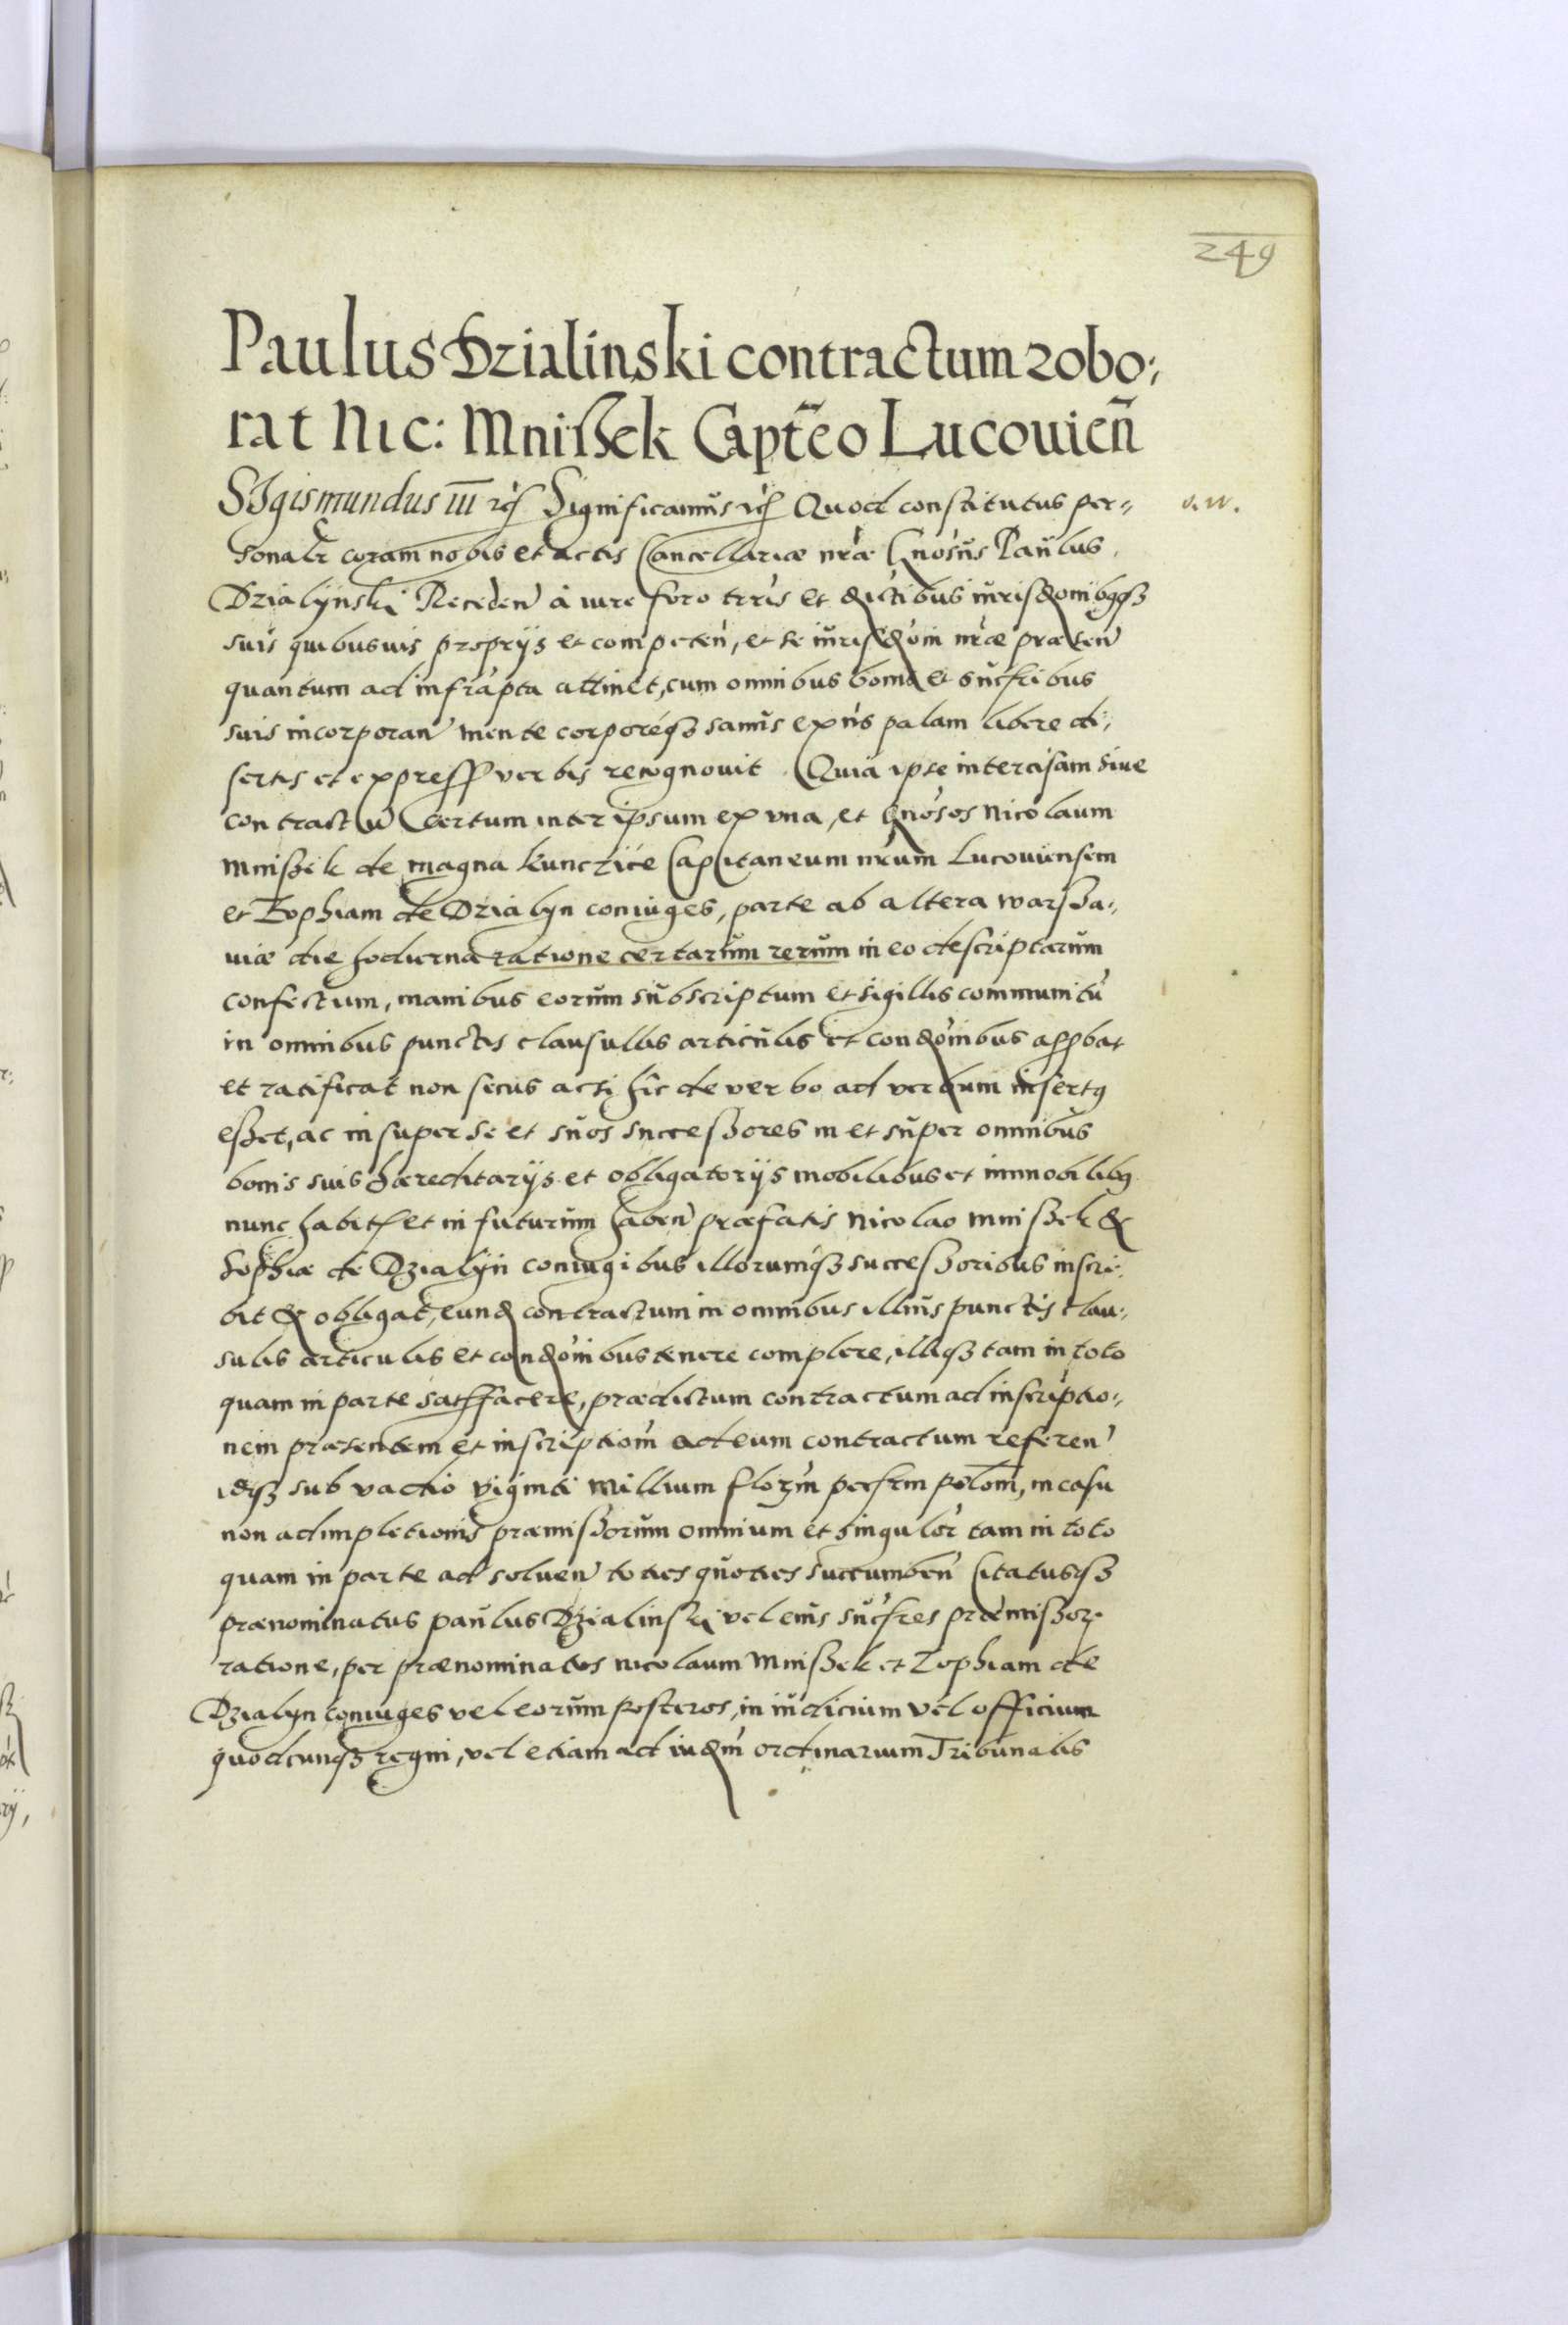 249
Paulus Dzialinski contractum robo:
rat Nic: Mnißek Capt̃eo Lucouien̄
SIgismundus III etc Significamus etc Quod constitutus per=
s. w.
sonalr coram nobis et actis Cancellariæ nr̃æ Gnosus Paulus
Dzialÿnski Receden̄ à iure foro terris et dictibus iurisdonibqz
suis quibusuis proprijs et competen̄, et se iurisdoni nr̃æ præsen̄
quantum ad infrapta attinet, cum omnibus bonis et sucſribus
suis incorporan̄ mente corporéqz sanus exñs palam libere di:
sertis et express verbis recognouit. Quia ipse intercisam siue
contractū certum inter ipsum ex vna, et Gnosos Nicolaum
Mnißek de magna Kunczice Capitaneum nr̃um Lucouiensem
et Zophiam de Dzialyn coniuges, parte ab altera Warsza:
uiæ die hodierna ratione certarum rerum in eo descriptarum
confectum, manibus eorum subscriptum et sigillis communitū
in omnibus punctis clausullis articulis et condonibus approbat
et ratificat non secus ac si hic de verbo ad verbum insertus
eßet, ac insuper se et suos succeßores in et super omnibus
bonis suis hæreditarijs et obligatorijs mobilibus et immobilibus
nunc habit et in futurum haben̄ præfatis Nicolao Mnißek &
Sophiæ de Dzialÿn coniugibus illorumqz succeßoribus inscri:
bit & obligat, eund contractum in omnibus illius punctis clau:
sulis articulis et condonibus tenere complere, illiqz tam in toto
quam in parte satffacere, prædictum contractum ad inscriptio:
nem præsentem et inscriptiom̄ ad eum contractum referen̄
idqz sub vadio viginti millium florm̄ pecſrm polom̄, in casu
non adimpletionis præmißorum omnium et singulor tam in toto
quam in parte ad soluen̄ toties quoties succumben̄ Citatusqz
prænominatus Paulus Dzialinski vel eius sucſres præmißor
ratione, per prænominatos Nicolaum Mnißek et Zophiam de
Dzialyn coniuges vel eorum posteros, in iudicium vel officium
quodcunqz regni, vel etiam ad iudm̄ ordinarium Tribunalis